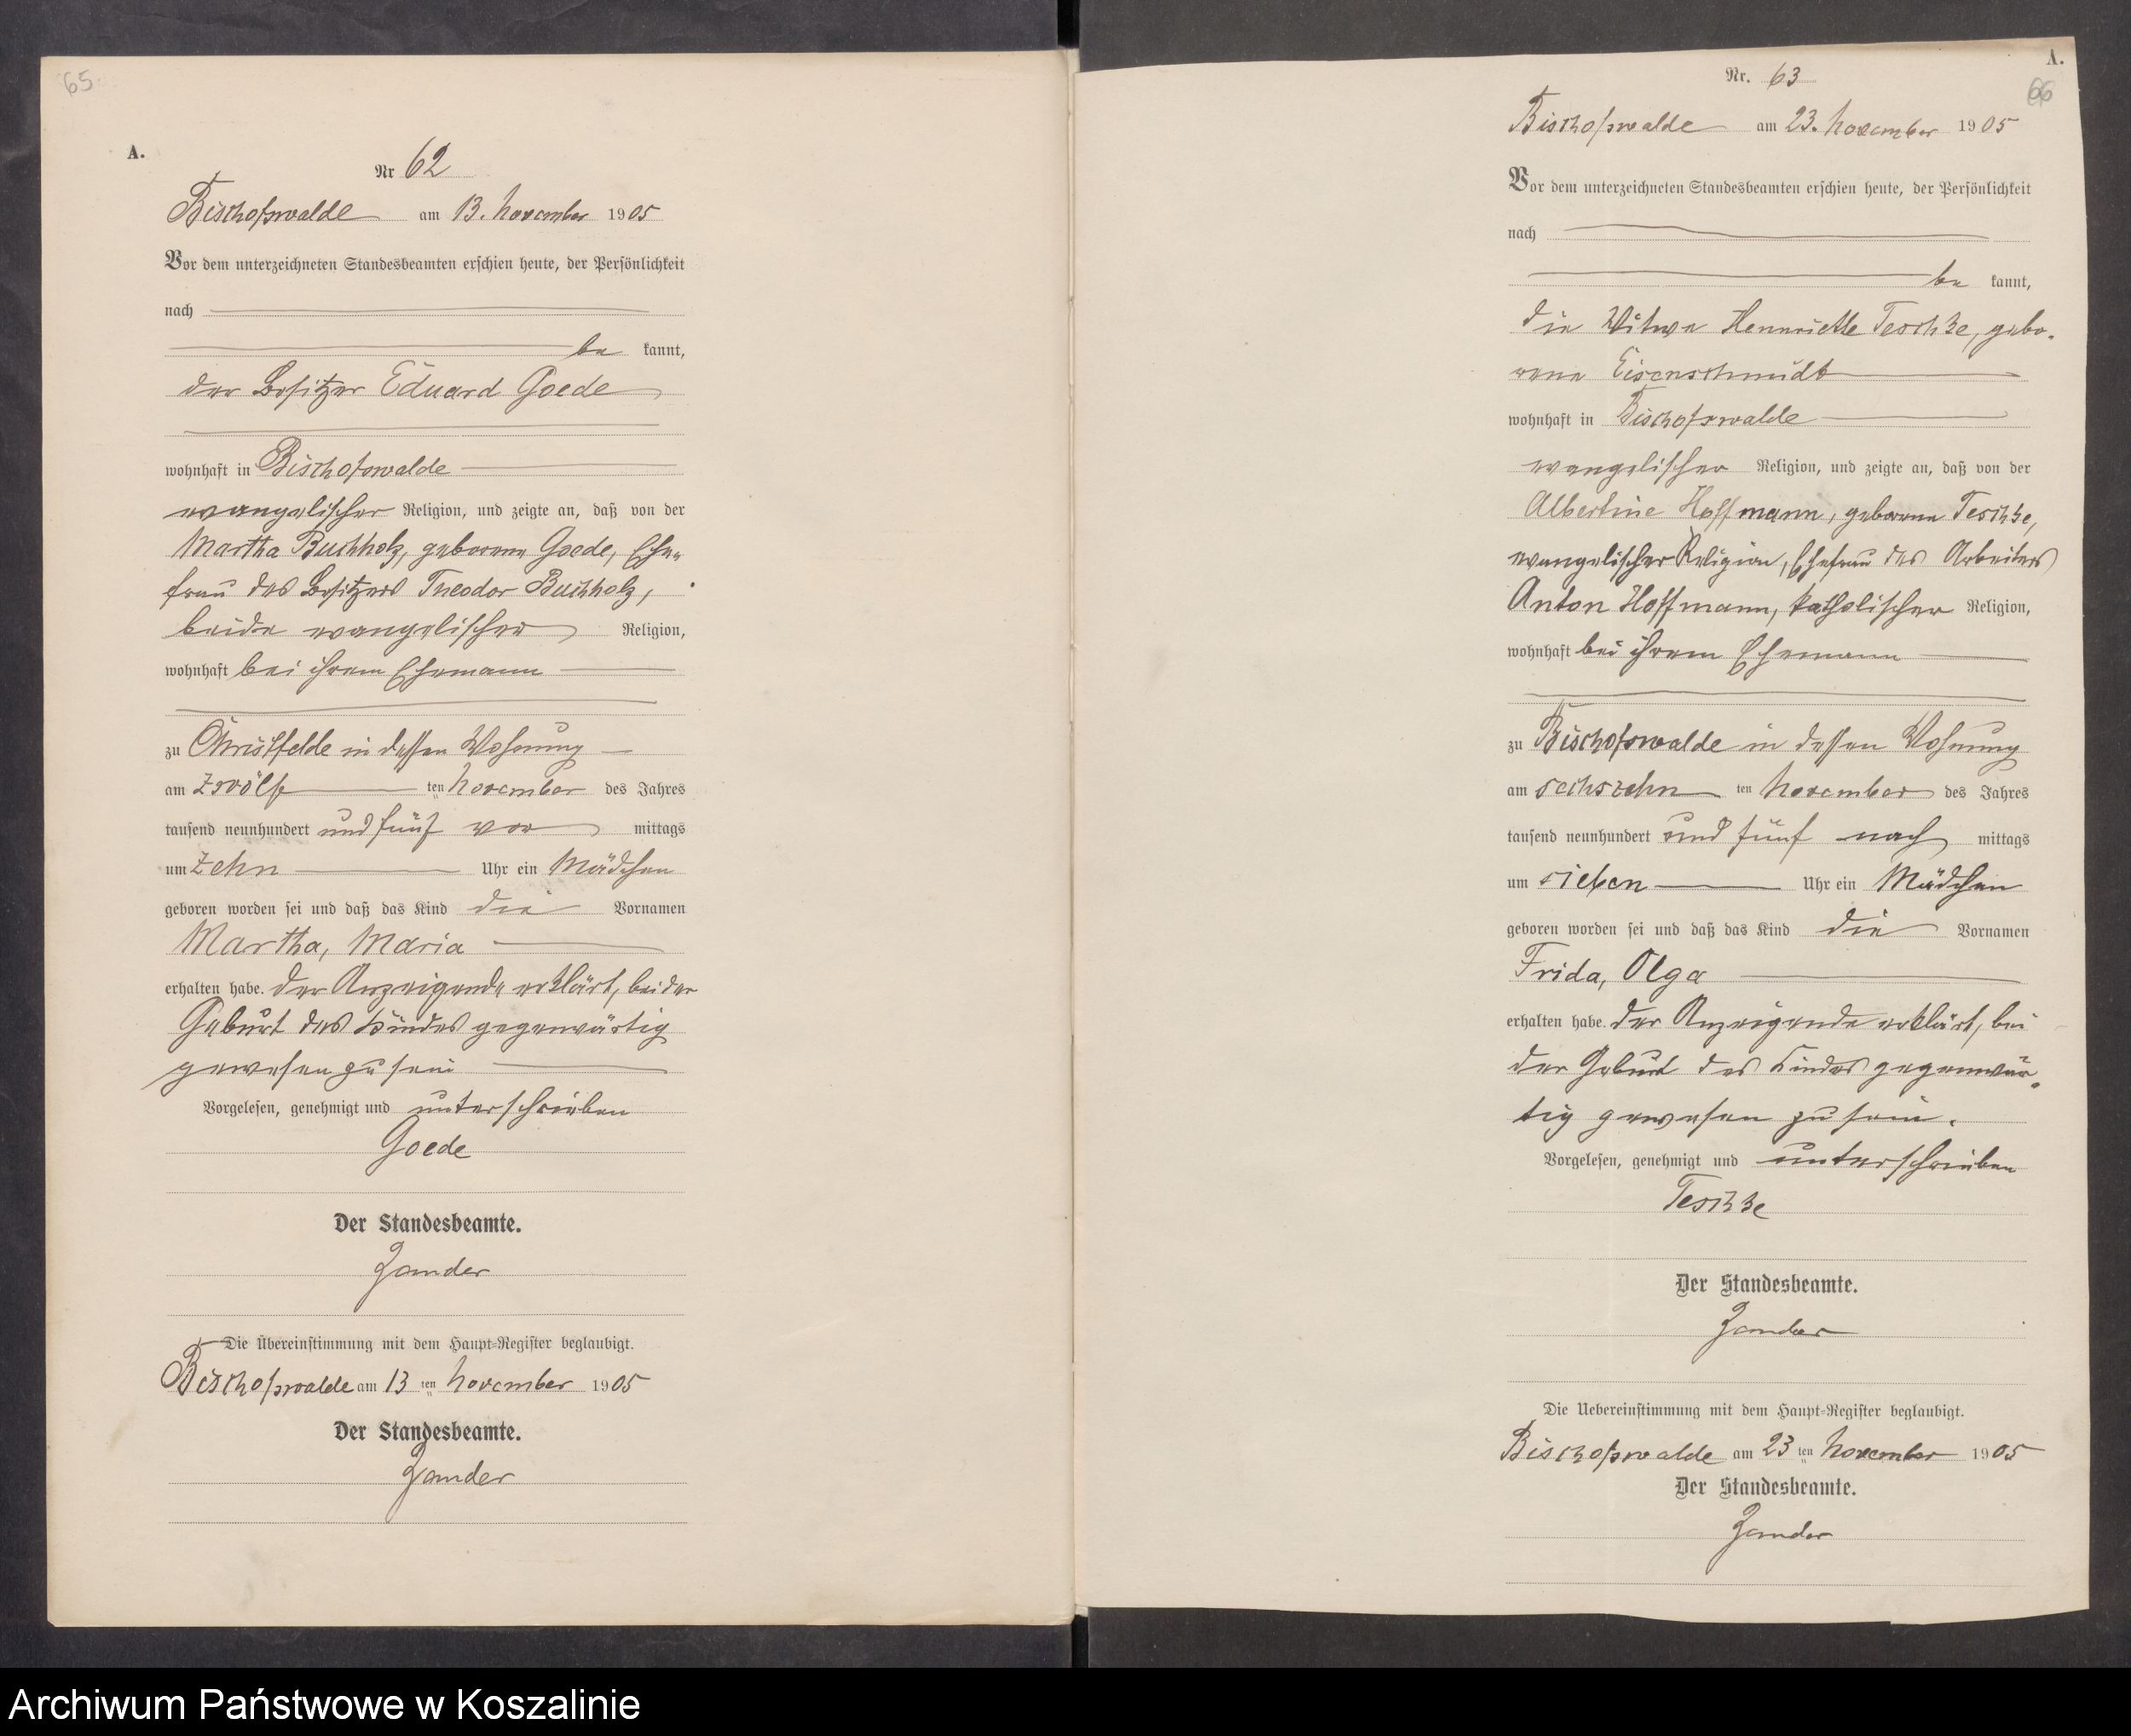 65
A.
Nr 62
Bischofswalde am 13. November 1905
Vor dem unterzeichneten Standesbeamten erschien heute, der Persönlichkeit
nach
be kannt,
der Besitzer Eduard Goede
wohnhaft in Bischofswalde
evangelischer Religion, und zeigte an, daß von der
Martha Buchholz, geborene Goede, Ehe-
frau des Besitzers Theodor Buchholz,
beide evangelischer Religion,
wohnhaft bei ihrem Ehemann
zu Christfelde in dessen Wohnung
am zwölf ten November des Jahres
tausend neunhundert und fünf vor mittags
um zehn Uhr ein Mädchen
geboren worden sei und daß das Kind die Vornamen
Martha, Maria
erhalten habe. Der Anzeigende erklärt, bei der
Geburt des Kindes gegenwärtig
gewesen zu sein
Vorgelesen, genehmigt und unterschrieben
Goede
Der Standesbeamte.
Zander
Die Übereinstimmung mit dem Haupt-Register beglaubigt.
Bischofswalde am 13 ten November 1905
Der Standesbeamte.
Zander
A.
66
Nr. 63
Bischofswalde am 23. November 1905
Vor dem unterzeichneten Standesbeamten erschien heute, der Persönlichkeit
nach
be kannt,
die Witwe Hennriette Teschke, gebo-
rene Eisenschmidt
wohnhaft in Bischofswalde
evangelischer Religion, und zeigte an, daß von der
Albertine Hoffmann, geborene Teschke,
evangelischer Religion, Ehefrau des Arbeiters
Anton Hoffmann, katholischer Religion,
wohnhaft bei ihrem Ehemann
zu Bischofswalde in dessen Wohnung
am sechszehn ten November des Jahres
tausend neunhundert und fünf nach mittags
um sieben Uhr ein Mädchen
geboren worden sei und daß das Kind die Vornamen
Frida, Olga
erhalten habe. Der Anzeigende erklärt, bei
der Geburt des Kindes gegenwär-
tig gewesen zu sein.
Vorgelesen, genehmigt und unterschrieben
Teschke
Der Standesbeamte.
Zander
Die Uebereinstimmung mit dem Haupt-Register beglaubigt.
Bischofswalde am 23 ten November 1905
Der Standesbeamte.
Zander
Archiwum Państwowe w Koszalinie